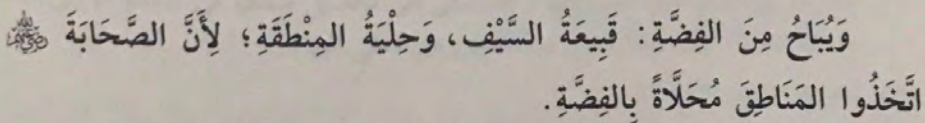 وَيُبَاحُ مِنَ الفِضَّةِ: قَبِيعَةُ السَّيْفِ، وَحِلْيَةُ المِنْطَقَةِ؛ لِأَنَّ الصَّحَابَةَ ﵃
اتَّخَذُوا المَنَاطِقَ مُحَلَّاةً بِالفِضَّةِ.